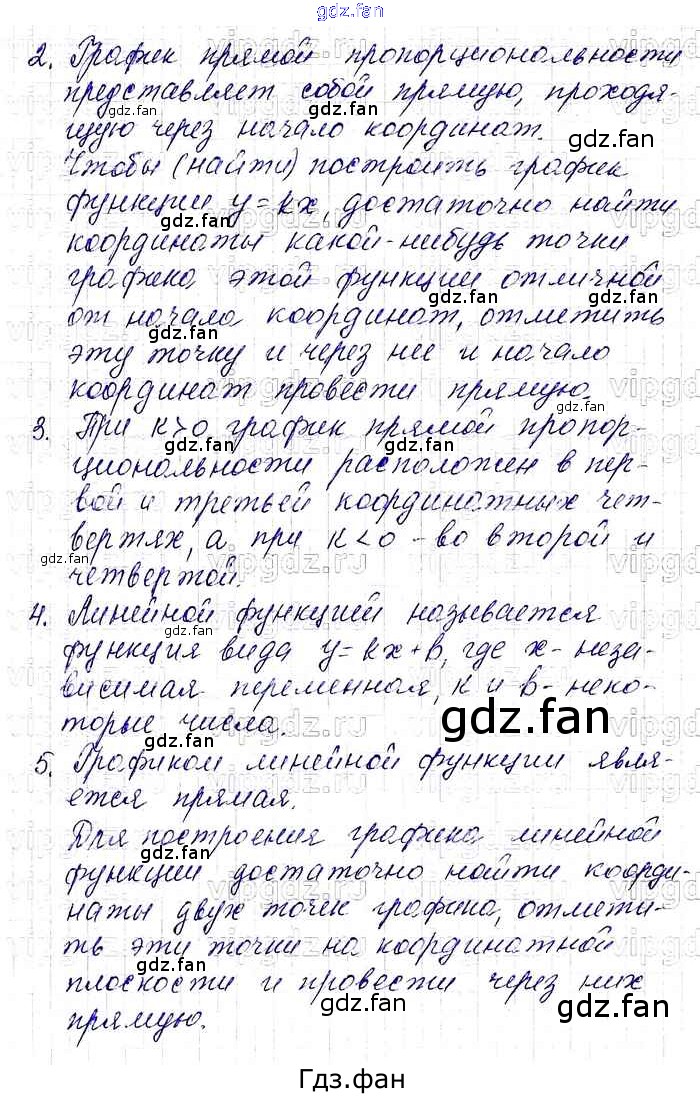 gdz.fan
2. График прямой пропорциональности
представляет собой прямую, проходя-
щую через начало координат.
Чтобы (найти) построить график
функции y = kx, достаточно найти
координаты какой-нибудь точки
графика этой функции отличной
от начала координат, отметить
эту точку и через неё и начало
координат провести прямую.
3. При k>0 график прямой пропор-
циональности расположен в пер-
вой и третьей координатных чет-
вертях, а при k<0 - во второй и
четвертой.
4. Линейной функцией называется
функция вида y = kx + b, где x - неза-
висимая переменная, k и b - неко-
торые числа.
gdz.fan
5. Графиком линейной функции явля-
ется прямая.
Для построения графика линейной
функции достаточно найти коорди-
наты двух точек графика, отмети-
ть эти точки на координатной
плоскости и провести через них
прямую.
gdz.fan
Гдз.фан